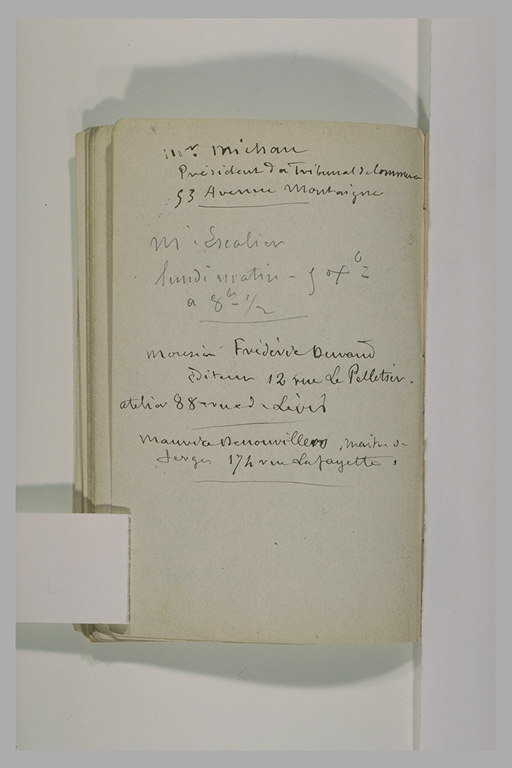 Mr Michau
Président du Tribunal de Commerce
53 Avenue Montaigne
Mr Escalier
lundi matin - 5 8bre
a 8h 1/2
Monsieur Frédéric Durand
Editeur 12 rue Le Pelletier.
atelier 88 rue de Lévis
Maurice Denouvilles, Maitre de
forges 174 rue Lafayette.